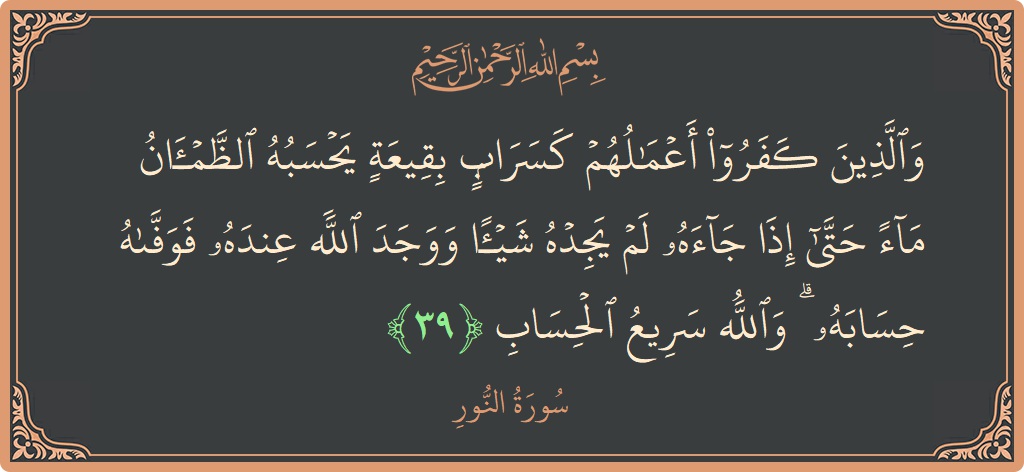 بِسْمِ اللَّهِ الرَّحْمَٰنِ الرَّحِيمِ
وَٱلَّذِينَ كَفَرُوٓا۟ أَعْمَـٰلُهُمْ كَسَرَابٍۭ بِقِيعَةٍ يَحْسَبُهُ ٱلظَّمْـَٔانُ
مَآءً حَتَّىٰٓ إِذَا جَآءَهُۥ لَمْ يَجِدْهُ شَيْـًٔا وَوَجَدَ ٱللَّهَ عِندَهُۥ فَوَفَّىٰهُ
حِسَابَهُۥ ۗ وَٱللَّهُ سَرِيعُ ٱلْحِسَابِ ﴿٣٩﴾
سُورَةُ النُّورِ